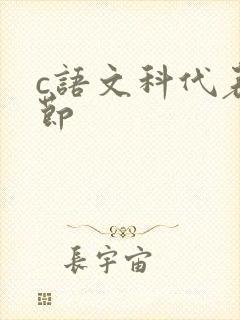 c語文科代
節
長宇宙